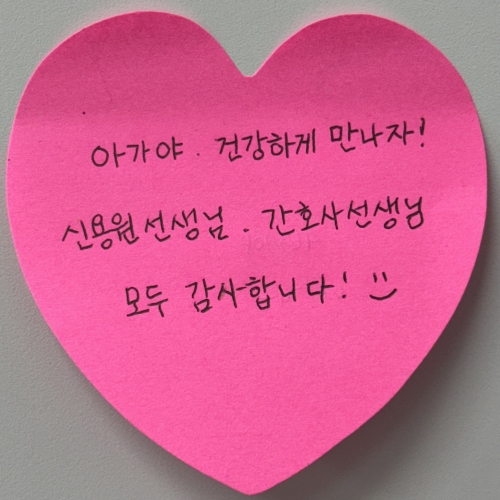 아가야. 건강하게 만나자!
신용원선생님. 간호사선생님
모두 감사합니다! :)